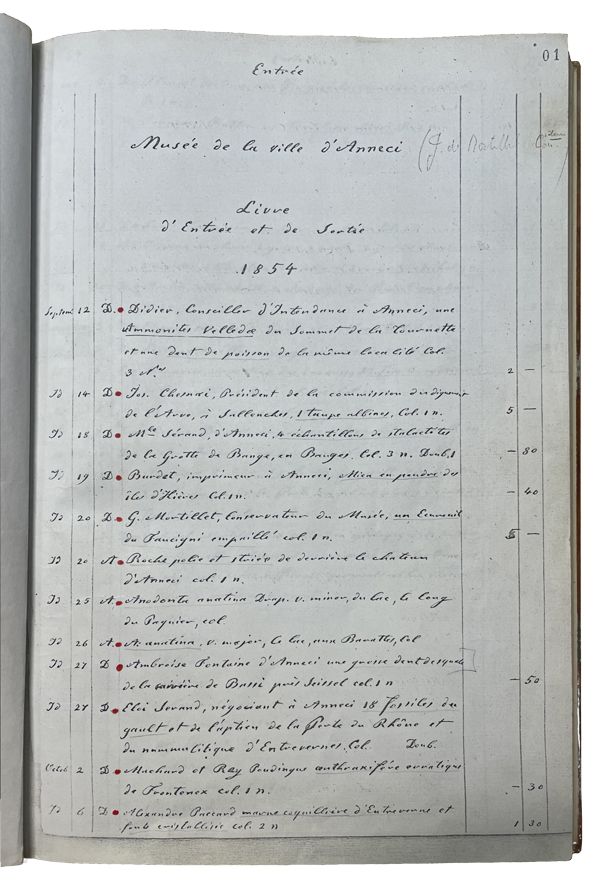 01
Entrée
Musée de la ville d'Anneci (G. de Mortillet Con
Livre
d'Entrée et de Sortie
1854
Septem 12 D. Didier, Conseiller d'Intendance à Anneci, une
Ammonites Velledæ du Sommet de la Tournette
et une dent de poisson de la même localité Col.
3 Nos 2 —
Id 14 D. Jos. Chesnai, Président de la commission du
de l'Arve, à Sallenches, 1 taupe albinos, Col. 1 n. 5 —
Id 18 D. Mce Sérand, d'Anneci, 4 échantillons de stalactites
de la Grotte de Bange, en Bauges. Col. 3 n. Doub. 1 — 80
Id 19 D. Burdet, imprimeur à Anneci, Mica en poudre des
îles d'Hières Col. 1 n. — 40
Id 20 D. G. Mortillet, Conservateur du Musée, un Ecureuil
du Faucigni empaillé col. 1 n. 5 —
Id 20 A. Roche polie et striée de derrière le chateau
d'Anneci col. 1 n.
Id 25 A. Anodonta anatina Drap. v. minor, du lac, le long
du Paquier, col
Id 26 A. A. anatina, v. major, le lac, aux Barattes, Col
Id 27 D. Ambroise Fontaine d'Anneci une grosse dent de squale
de la carrière de Bassi près Seissel col. 1 n — 50
Id 27 D. Eloi Serand, négociant à Anneci 18 fossiles du
gault et de l'aptien de la Perte du Rhône et
du nummulitique d'Entrevernes. Col. Doub.
Octob 2 D. Machard et Rey Poudingue anthraxifère erratique
de Frontenex col. 1 n. — 30
Id 6 D. Alexandre Paccard marne coquillière d'Entreverne et
cristallisée col. 2 n 1 30